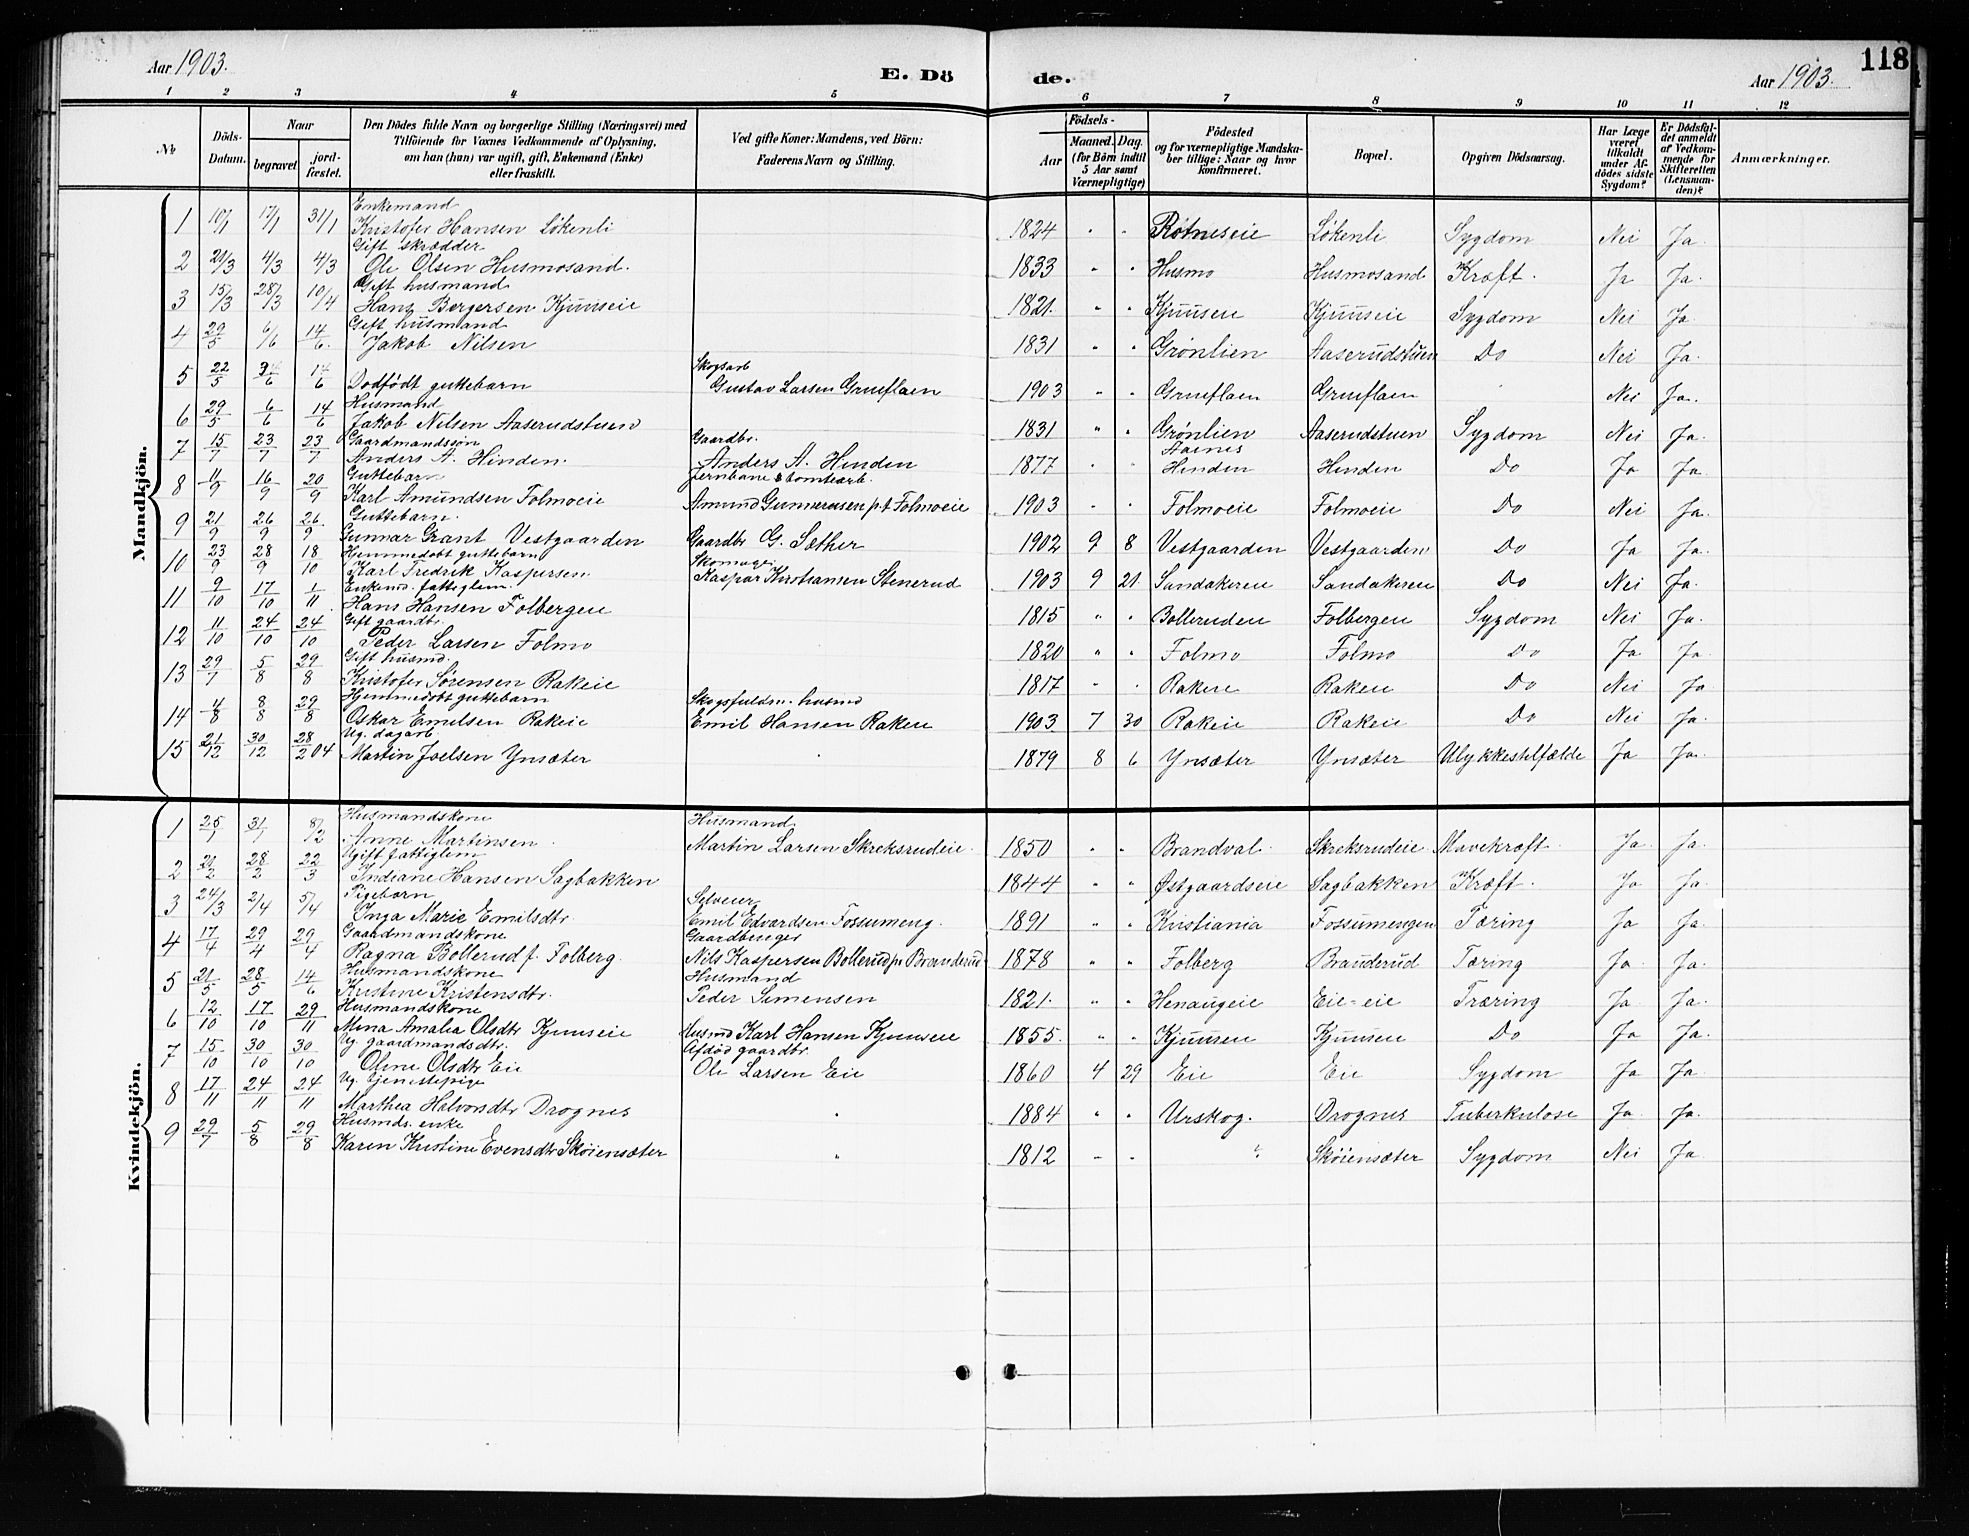 118
Aar 1903.
E. Dö de.
Aar 1903.
1 2 3 4 5 6 7 8 9 10 11 12
№ Döds-Datum. Naar begravet jord-fæstet. Den Dödes fulde Navn og borgerlige Stilling (Næringsvei) med Tilföiende for Voxnes Vedkommende af Oplysning, om han (hun) var ugift, gift, Enkemand (Enke) eller fraskilt. Ved gifte Koner: Mandens, ved Börn: Faderens Navn og Stilling. Födsels- Aar Maaned. Dag. (for Börn indtil 5 Aar samt Værnepligtige) Födested og for værnepligtige Mandskaber tillige: Naar og hvor konfirmeret. Bopæl. Opgiven Dödsaarsag. Har Læge været tilkaldt under Afdödes sidste Sygdom? Er Dödsfaldet anmeldt af Vedkommende for Skifteretten (Lensmanden)? Anmærkninger.
Mandkjön.
Enkemand
1 10/1 17/1 31/1 Kristofer Hansen Løkenli 1824 " " Røtneseie Løkenli Sygdom Nei Ja.
Gift skrædder
2 21/3 4/3 4/3 Ole Olsen Husmosand. 1833 " " Husmo Husmosand Kræft. Ja Ja.
Gift husmand
3 15/3 28/3 10/4 Hans Bergersen Kjuuseie 1821. " " Kjuuseie Kjuuseie Sygdom Nei Ja.
Gift husmand
4 29/5 6/6 14/6. Jakob Nilsen 1831 " " Grønlien Aaserudstuen Do Nei Ja.
Skogsarb
5 22/5 /6 14/6 Dødfødt guttebarn Gustav Larsen Grueflaen 1903 " " Grueflaen Grueflaen Nei Ja.
Husmand
6 29/5 6/6 14/6 Jakob Nilsen Aaserudstuen 1831 " " Grønlien Aaserudstuen Sygdom Nei Ja.
Gaardmandssøn Gaardbr. Aasnes
7 15/7 23/7 23/7 Anders A. Hinden. Anders A. Hinden 1877 " " Hinden Hinden Do Ja Ja.
Guttebarn Jernbane & tomtearb.
8 11/9 16/9 20/9 Karl Amundsen Folmoeie Amund Gunnerusen p.t Folmoeie 1903 " " Folmoeie Folmoeie Do Nei Ja.
Guttebarn.
9 21/9 26/9 26/9 Gunnar Grant Vestgaarden Gaardbr G. Sæther 1902 9 8 Vestgaarden Vestgaarden Do Ja Ja.
Hjemmedøbt guttebarn Skomager
10 23/9 28/9 18/10 Karl Fredrik Kaspersen. Kaspar Kristiansen Stenerud 1903 9 21. Sandakereie Sandakereie Do Nei Ja.
Enkemd. fattiglem.
11 9/10 17/10 1/11 Hans Hansen Folbergeie 1815 " " Bollerudeie Folbergeie Sygdom Nei Ja.
Gift gaardbr.
12 11/10 24/10 24/10 Peder Larsen Folmo 1820 " " Folmo Folmo Do Ja Ja.
Gift husmd.
13 29/7 5/8 29/8 Kristofer Sørensen Rakeie 1817 " " Rakeie Rakeie Do Nei Ja.
Hjemmedøbt guttebarn Skogsfuldm. husmd
14 4/8 8/8 29/8 Oskar Emilsen Rakeie Emil Hansen Rakeie 1903. 7 30 Rakeie Rakeie Do Nei Ja.
Ug. dagarb
15 21/12 30/12 28/2 04 Martin Joelsen Ynsæter 1879 8 6 Ynsæter Ynsæter Ulykkestilfælde Ja Ja.
Kvindekjön.
Husmandskone Husmand
1 25/1 31/1 8/2 Anne Martinsen. Martin Larsen Skreksrudeie. 1850 " " Brandval. Skreksrudeie Mavekræft. Ja Ja.
Ugift fattiglem
2 21/2 28/2 22/3 Indiane Hansen Sagbakken 1844 " " Østgaardseie Sagbakken Kræft. Ja Ja.
Pigebarn Selveier
3 24/3 2/4 5/4 Inga Marie Emilsdtr. Emil Edvardsen Fossumeng. 1891 " " Kristiania Fossumengen Tæring Ja Ja.
Gaardmandskone Gaardbruger
4 17/4 29/4 29/4 Ragna Bollerud f. Folberg. Nils Kaspersen Bollerud pr Branderud 1878 " " Folberg Branderud Tæring Ja. Ja.
Husmandskone Husmand
5 21/5 28/5 14/6 Kristine Kristensdtr. Peder Simensen 1821. " " Henaugeie Eie-eie Træring Ja. Ja.
Husmandskone
6 12/10 17/10 29/11 Mina Amalia Olsdtr Kjuuseie Husmd Karl Hansen Kjuuseie 1855. " " Kjuuseie Kjuuseie Do Ja Ja.
Ug. gaardmandsdtr. Afdød gaardbr.
7 15/10 30/10 30/10 Oline Olsdtr Eie Ole Larsen Eie 1860 4 29 Eie Eie Sygdom Ja Ja.
Ug. tjenestepige
8 17/11 24/11 24/11 Marthea Halvorsdtr Drognes " 1884 " " Urskog. Drognes Tuberkulose Ja. Ja.
Husmds. enke
9 29/7 5/8 29/8 Karen Kristine Evensdtr Skøiensæter " 1812 " " " Skøiensæter Sygdom Nei Ja.